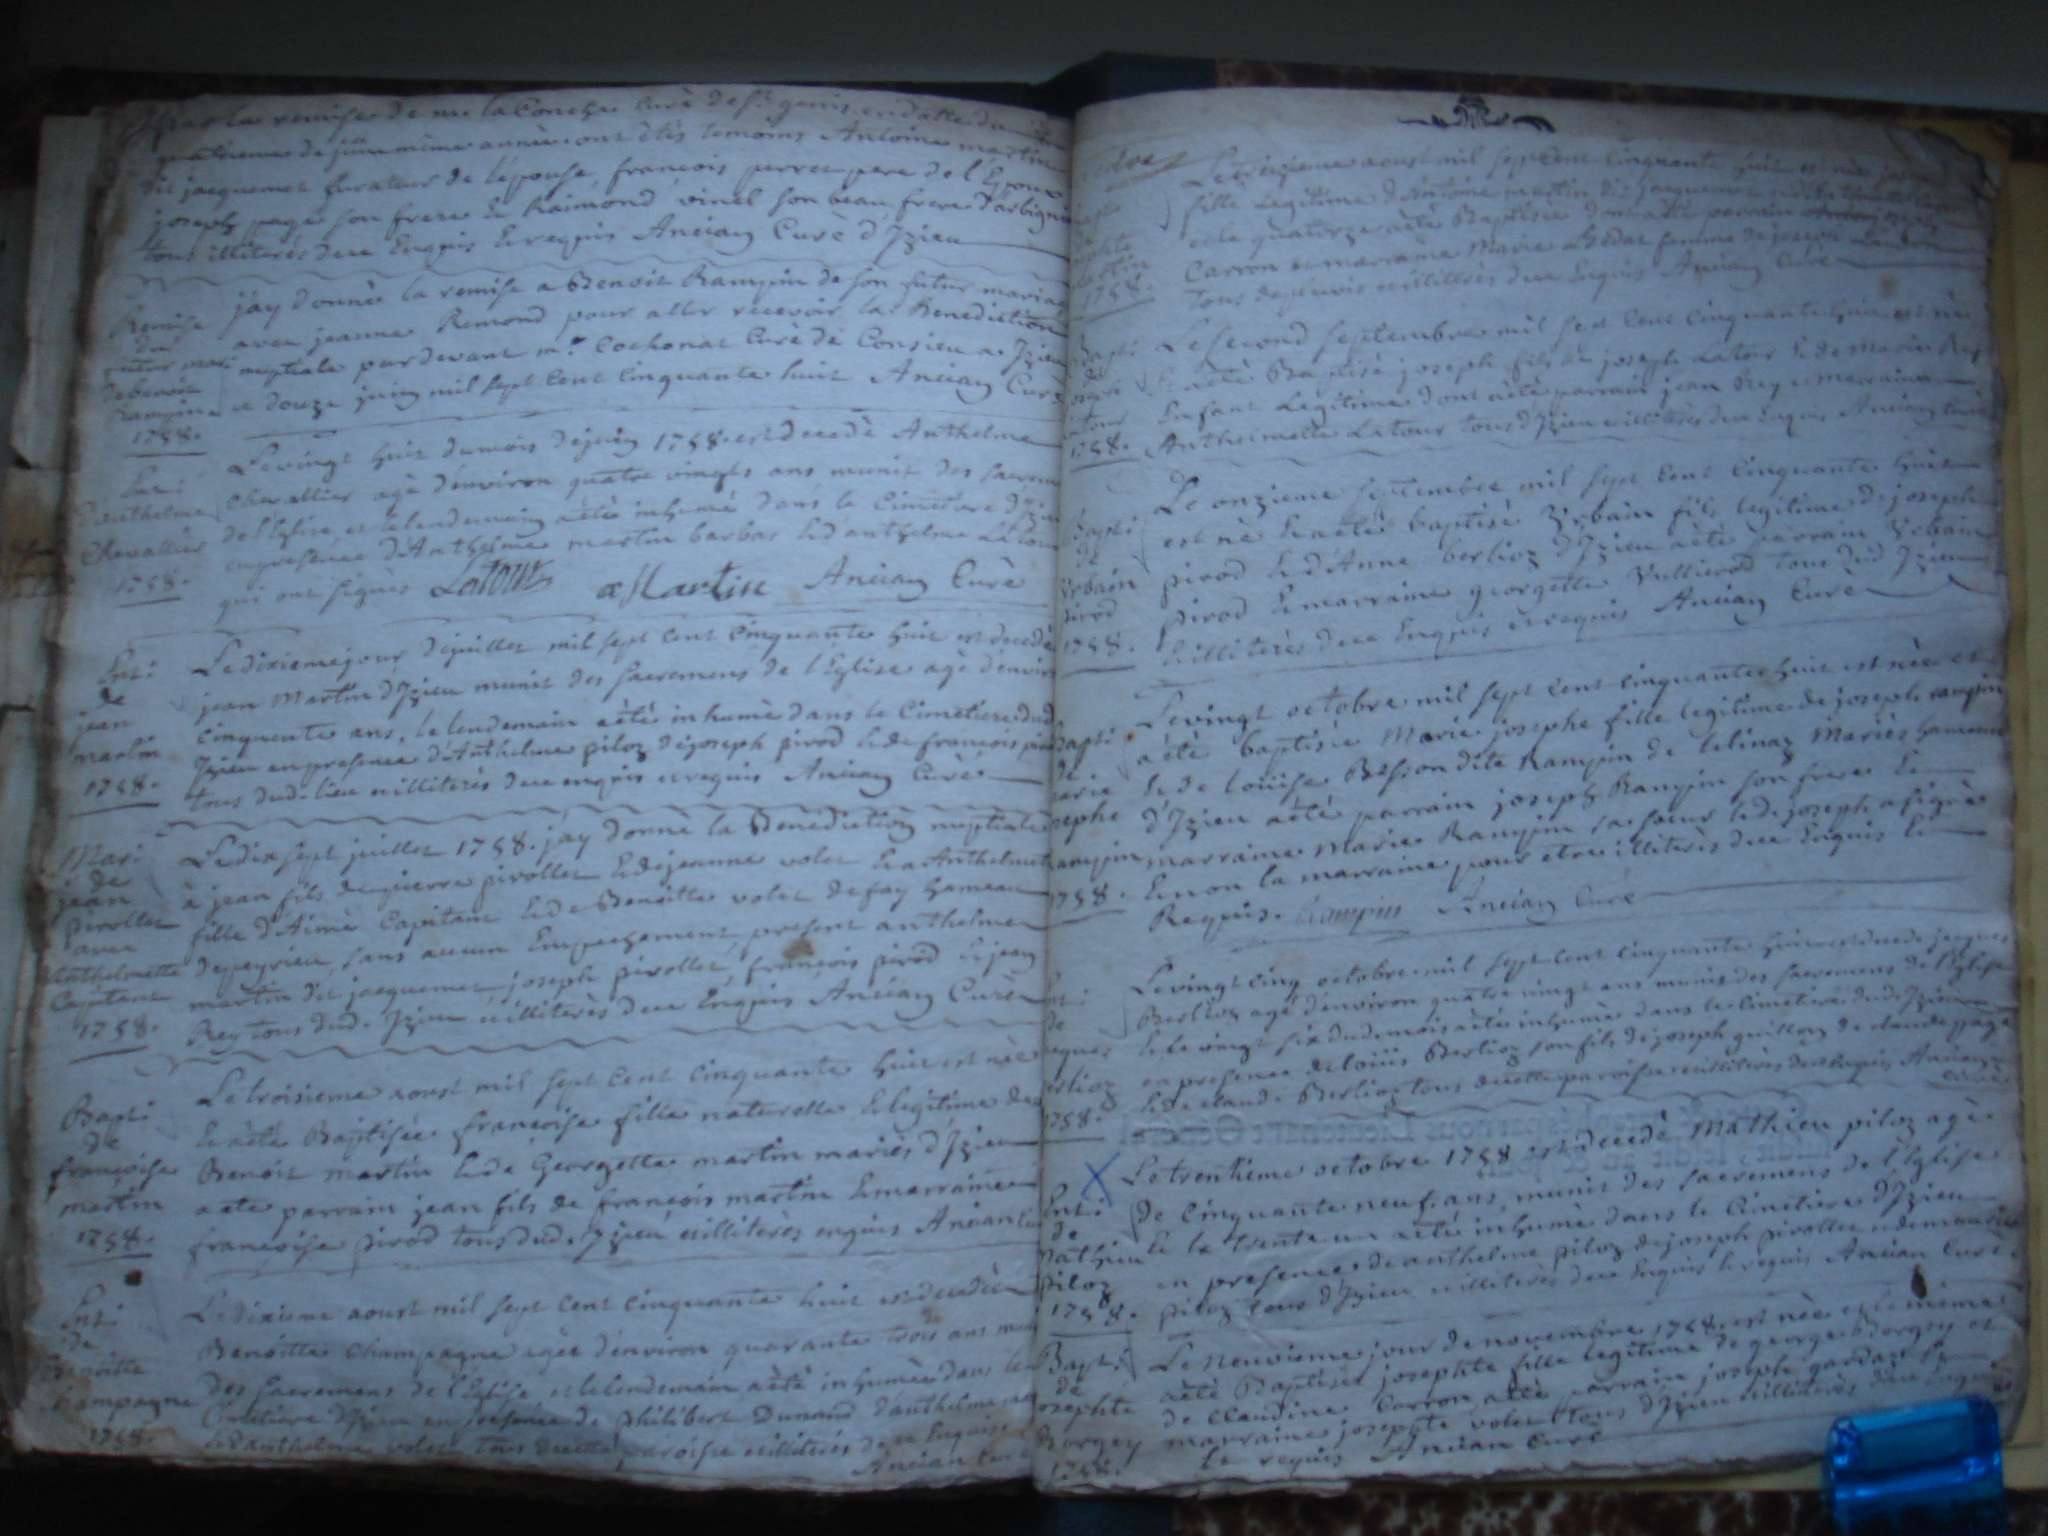 par la remise de m.e la Conche curé de st genis en datte du
quatrieme de juin même année ont étés temoins Antoine martin
dit jacquemet Curateur de l'épouse françois perret pere de l'Epoux
joseph page son frere & Raimond vinel son beau frere d'arbigneu
tous illiterés de ce Enquis & requis Ancian Curé d'Izieu
Remise
du
futur mari
de benoit
Rampin
1758.
j'ay donné la remise a Benoit Rampin de son futur mariage
avec jeanne Remond pour aller recevoir la Benediction
nuptiale par devant m.r Cochonat Curé de Consieu a Izieu
ce douze juin mil sept cent cinquante huit Ancian Curé
Ent:
d'anthelme
Chevallier
1758.
Le vingt huit du mois de juin 1758. est decedé Anthelme
Chevallier agé d'environ quatre vingts ans munit des sacremens
de l'Eglise et le lendemain a été inhumé dans le Cimetiere d'Izieu
en presence d'Anthelme martin barbas & d'anthelme Latour
qui ont signés Latour aMartin Ancian Curé
Ent:
de
jean
martin
1758.
Le dixieme jour de juillet mil sept cent cinquante huit est decedé
jean Martin d'Izieu munit des sacremens de l'Eglise agé d'environ
cinquente ans, le lendemain a été inhumé dans le Cimetiere dud.
Izieu en presence d'Anthelme piloz de joseph pirod & de françois pirod
tous dud. lieu & illiterés de ce enquis & requis Ancian Curé
Mari
de
jean
pirollet
avec
Anthelmette
Capitant
1758.
Le dix sept juillet 1758. j'ay donné la Benediction nuptiale
à jean fils de pierre pirollet & de jeanne volet & a Anthelmette
fille d'Aimé Capitant & de Benoitte volet de fay hameau
de peyrieu, sans aucun Empechement, present anthelme
martin dit jacquemet joseph pirollet, françois pirod & jean
Rey tous dud. Izieu & illiterés de ce Enquis Ancian Curé
Bapt:
de
françoise
martin
1758.
Le troisieme aoust mil sept cent cinquante huit est née
& a été Baptisée françoise fille naturelle & legitime de
Benoit martin & de Georgette martin mariés d'Izieu
a été parrain jean fils de françois martin & marraine
françoise pirod tous dud. Izieu & illiterés enquis Ancian Curé
Ent:
de
Benoitte
Champagne
1758.
Le dixieme aoust mil sept cent cinquante huit est decedée
Benoitte Champagne agée d'environ quarante trois ans munie
des sacremens de l'Eglise et le lendemain a été inhumée dans le
Cimetiere d'Izieu en presence de Philibert Dunand d'anthelme
& d'anthelme volet tous de cette paroisse & illiterés de ce Enquis
Ancian Curé
1758.
Le treizieme aoust mil sept cent cinquante huit est née
fille Legitime d'Antoine martin dit jacquemet
et le quatorze a été Baptisée dont a été parrain
Carron et marraine Marie femme de joseph
tous & illiterés de ce Enquis Ancian Curé
Bapti
de
joseph
Latour
1758.
Le second septembre mil sept cent cinquante huit est né
& a été Baptisé joseph fils de joseph Latour & de Marie Rey
Enfant Legitime dont a été parrain jean Rey et marraine
Anthelmette Latour tous d'Izieu & illiterés de ce Enquis Ancian Curé
Bapti
de
Urbain
pirod
1758.
Le onzieme septembre mil sept cent cinquante huit
est né & a été baptisé Urbain fils legitime de joseph
pirod & d'Anne berlioz d'Izieu a été parrain Urbain
pirod & marraine georgette Vullierod tous dud Izieu
& illiterés de ce Enquis et requis Ancian Curé
Bapti
de
Marie
josephe
Rampin
1758.
Le vingt octobre mil sept cent cinquante huit est née et
a été baptisée Marie josephe fille legitime de joseph rampin
& de Louise Besson dite Rampin de Lelinaz Mariés hameau
d'Izieu a été parrain joseph Rampin son frere &
marraine Marie Rampin sa soeur led. joseph a signé
& non la marraine pour etre illiterés de ce Enquis &
Requis. Rampin Ancian Curé
Ent:
de
jacques
Berlioz
1758.
Le vingt cinq octobre mil sept cent cinquante huit est decedé jacques
Berlioz agé d'environ quatre vingt ans munis des sacremens de l'Eglise
& le vingt six dud. mois a été inhumé dans le cimetiere dud. Izieu
en presence de Louis Berlioz son fils de joseph guillon de claude page
& de claude Berlioz tous de cette paroisse & illiterés de ce Enquis Ancian
Curé
Ent:
de
Mathieu
piloz
1758.
Le trentieme octobre 1758 est decedé Mathieu piloz agé
de cinquante neuf ans, munit des sacremens de l'Eglise
& le trente un a été inhumé dans le Cimetiere d'Izieu
en presence de anthelme piloz de joseph pirollet & de maurice
piloz tous d'Izieu & illiterés de ce Enquis & requis Ancian Curé
Bapti
de
josephte
Borgey
1758.
Le neuvieme jour de novembre 1758. est née et le même
a été Baptisée josephte fille legitime de george Borgey et
de Claudine Carron, a été parrain joseph gardaz &
marraine josephte volet tous d'Izieu & illiterés de ce Enquis
& requis Ancian Curé